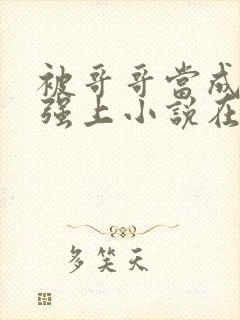 被哥哥當成
强上小說在
多笑天